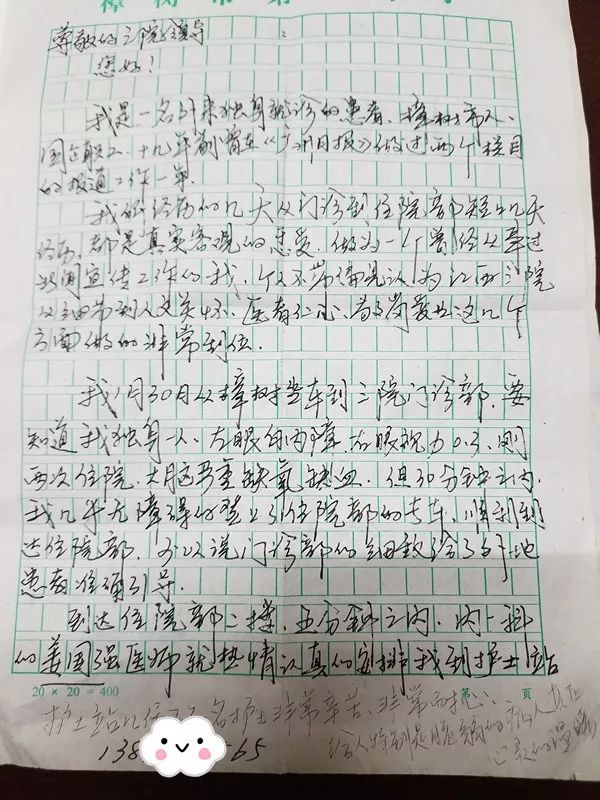 尊敬的三院领导
您好!
我是一名外来独身就诊的患者，樟树市人、
国企职工。十几年前曾在《广州日报》做过两个栏目
的报道工作一年。
我的经历的几天从门诊到住院部短短几天
经历，都是真实客观的感受。做为一个曾经从事过
新闻宣传工作的我，个人不带偏见认为江西三院
从细节到人文关怀、医者仁心、首岗敬业这几个
方面做的非常到位。
我1月30日从樟树坐车到三院门诊部，要
知道我独身一人，左眼白内障，右眼视力0.3，刚
两次住院，大脑严重缺氧缺血。但30分钟之内，
我几乎无障碍的登上到住院部的专车，顺利到
达住院部。可以说门诊部的细致给了外地
患者准确引导。
到达住院部二楼，五分钟之内，内一科
的姜国强医师就热情认真的安排我到护士站
20 × 20 = 400
第 页
护士站几位 名护士非常辛苦、非常耐心、
给人特别是脆弱的病人真正
心灵的温暖
138 65